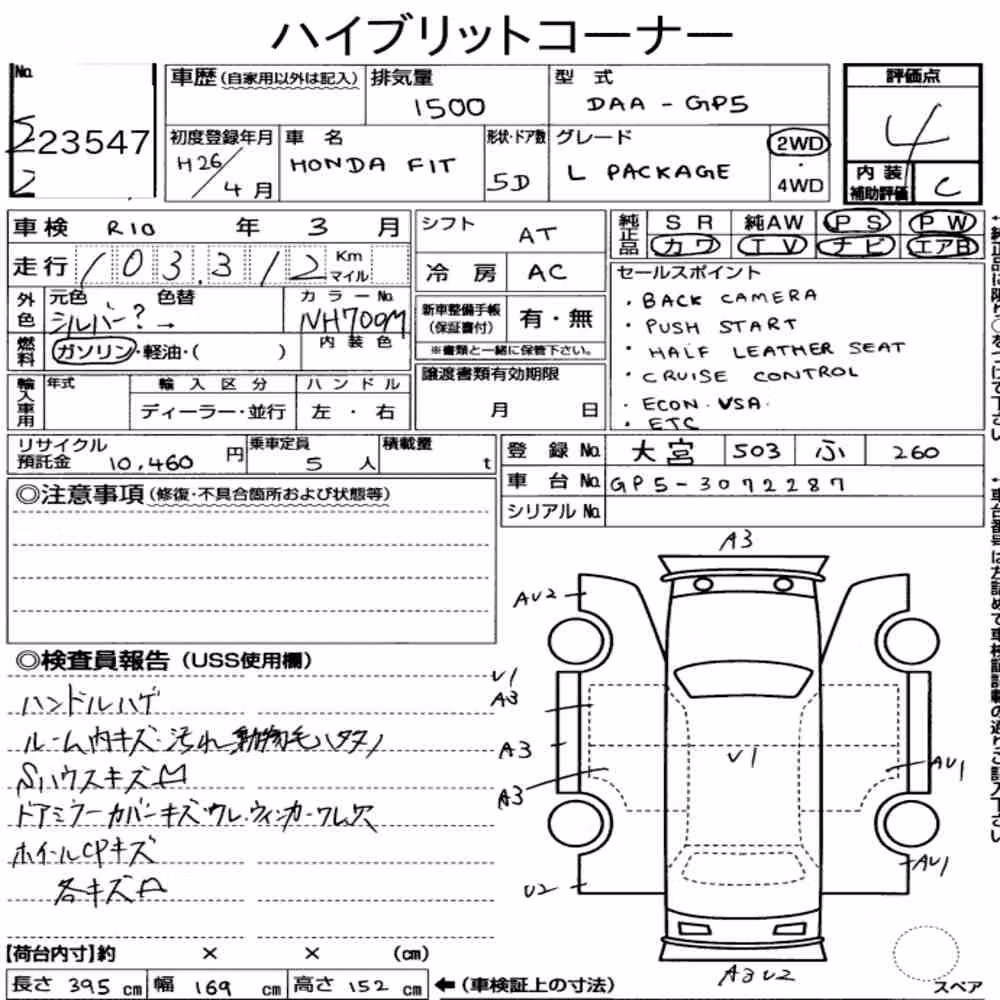 ハイブリットコーナー
No.
23547
車歴 (自家用以外は記入)
排気量
1500
型 式
DAA - GP5
評価点
4
初度登録年月
H26/4月
車 名
HONDA FIT
形状・ドア数
5D
グレード
L PACKAGE
2WD
・
4WD
内 装
補助評価
C
車検 R10 年 3 月
走行 103,312 Km マイル
シフト AT
冷 房 AC
純正品 SR 純AW PS PW
カワ TV ナビ エアB
外色 元色 色替
シルバー? →
カラーNo.
NH700M
内 装 色
燃料 ガソリン・軽油・( )
新車整備手帳
(保証書付)
有・無
※書類と一緒に保管下さい。
セールスポイント
・BACK CAMERA
・PUSH START
・HALF LEATHER SEAT
・CRUISE CONTROL
・ECON. VSA.
・ETC
輸入車用 年式 輸 入 区 分 ハ ン ド ル
ディーラー・並行 左 ・ 右
譲渡書類有効期限
月 日
リサイクル
預託金 10,460 円
乗車定員
5 人
積載量
t
登 録 No. 大宮 503 ふ 260
車 台 No. GP5-3072287
シリアル No.
◎注意事項 (修復・不具合箇所および状態等)
◎検査員報告 (USS使用欄)
ハンドルハゲ
ルーム内キズ・汚れ 動物毛
Sハウスキズ
ドアミラーカバーキズワレ・ウィンカーワレ穴
ホイールCPキズ
各キズ
A3
AU2
U1
A3
A3
A3
U1
AU1
AU1
U2
A3 U2
【荷台内寸】約 × × (cm)
長さ 395 cm 幅 169 cm 高さ 152 cm
←(車検証上の寸法)
スペア